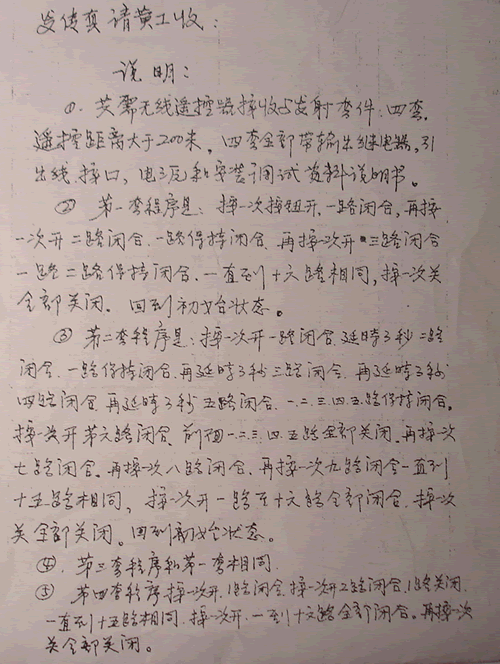 发传真请黄工收：
说明：
①. 共需无线遥控器接收与发射套件：四套，
遥控距离大于200米，四套全部带输出继电器，引
出线，接口，电瓦和安装调试资料说明书。
② 第一套程序是：按一次按钮开，一路闭合，再按
一次开二路闭合，一路保持闭合，再按次开三路闭合
一路二路保持闭合，一直到十六路相同，按一次关
全部关闭，回到初始状态。
③ 第二套程序是：按一次开一路闭合，延时3秒二路
闭合，一路保持闭合，再延时3秒三路闭合，再延时3秒
四路闭合，再延时3秒五路闭合，一.二.三.四.五.路保持闭合。
按一次开第六路闭合，前面一.二.三.四.五路全部关闭，再按一次
七路闭合，再按一次八路闭合，再按一次九路闭合一直到
十五路相同，按一次开一路至十六路全部闭合，按一次
关全部关闭，回到初始状态。
④. 第三套程序和第一套相同.
⑤ 第四套程序，按一次开，1路闭合，按一次开2路闭合，1路关闭，
一直到十五路相同，按一次开，一到十六路全部闭合。再按一次
关全部关闭。